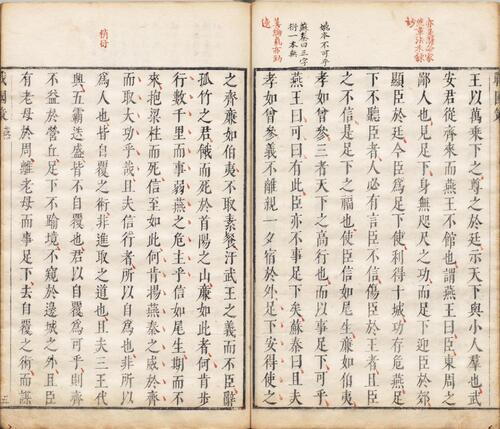 亦是議論家
短章法未錄
妙
姚本不可乎
蘇秦曰三字
衍一本無
王以萬乘下之尊之於廷示天下與小人羣也武
安君從齊來而燕王不館也謂燕王曰臣東周之
鄙人也見足下身無咫尺之功而足下迎臣於郊
顯臣於廷今臣爲足下使利得十城功存危燕足
下不聽臣者人必有言臣不信傷臣於王者且臣
之不信是足下之福也使臣信如尾生廉如伯夷
孝如曾參三者天下之高行也而以事足下可乎
燕王曰可曰有此臣亦不事足下矣蘇秦曰且夫
孝如曾參義不離親一夕宿於外足下安得使之
之齊廉如伯夷不取素餐汙武王之義而不臣辭
孤竹之君餓而死於首陽之山廉如此者何肯步
行數千里而事弱燕之危主乎信如尾生期而不
來抱梁柱而死信至如此何肯揚燕秦之威於齊
而取大功乎哉且夫信行者所以自爲也非所以
爲人也皆自覆之術非進取之道也且夫三王代
興五霸迭盛皆不自覆也君以自覆爲可乎則齊
不益於營丘足下不踰境不窺於邊城之外且臣
有老母於周離老母而事足下去自覆之術而謀
五